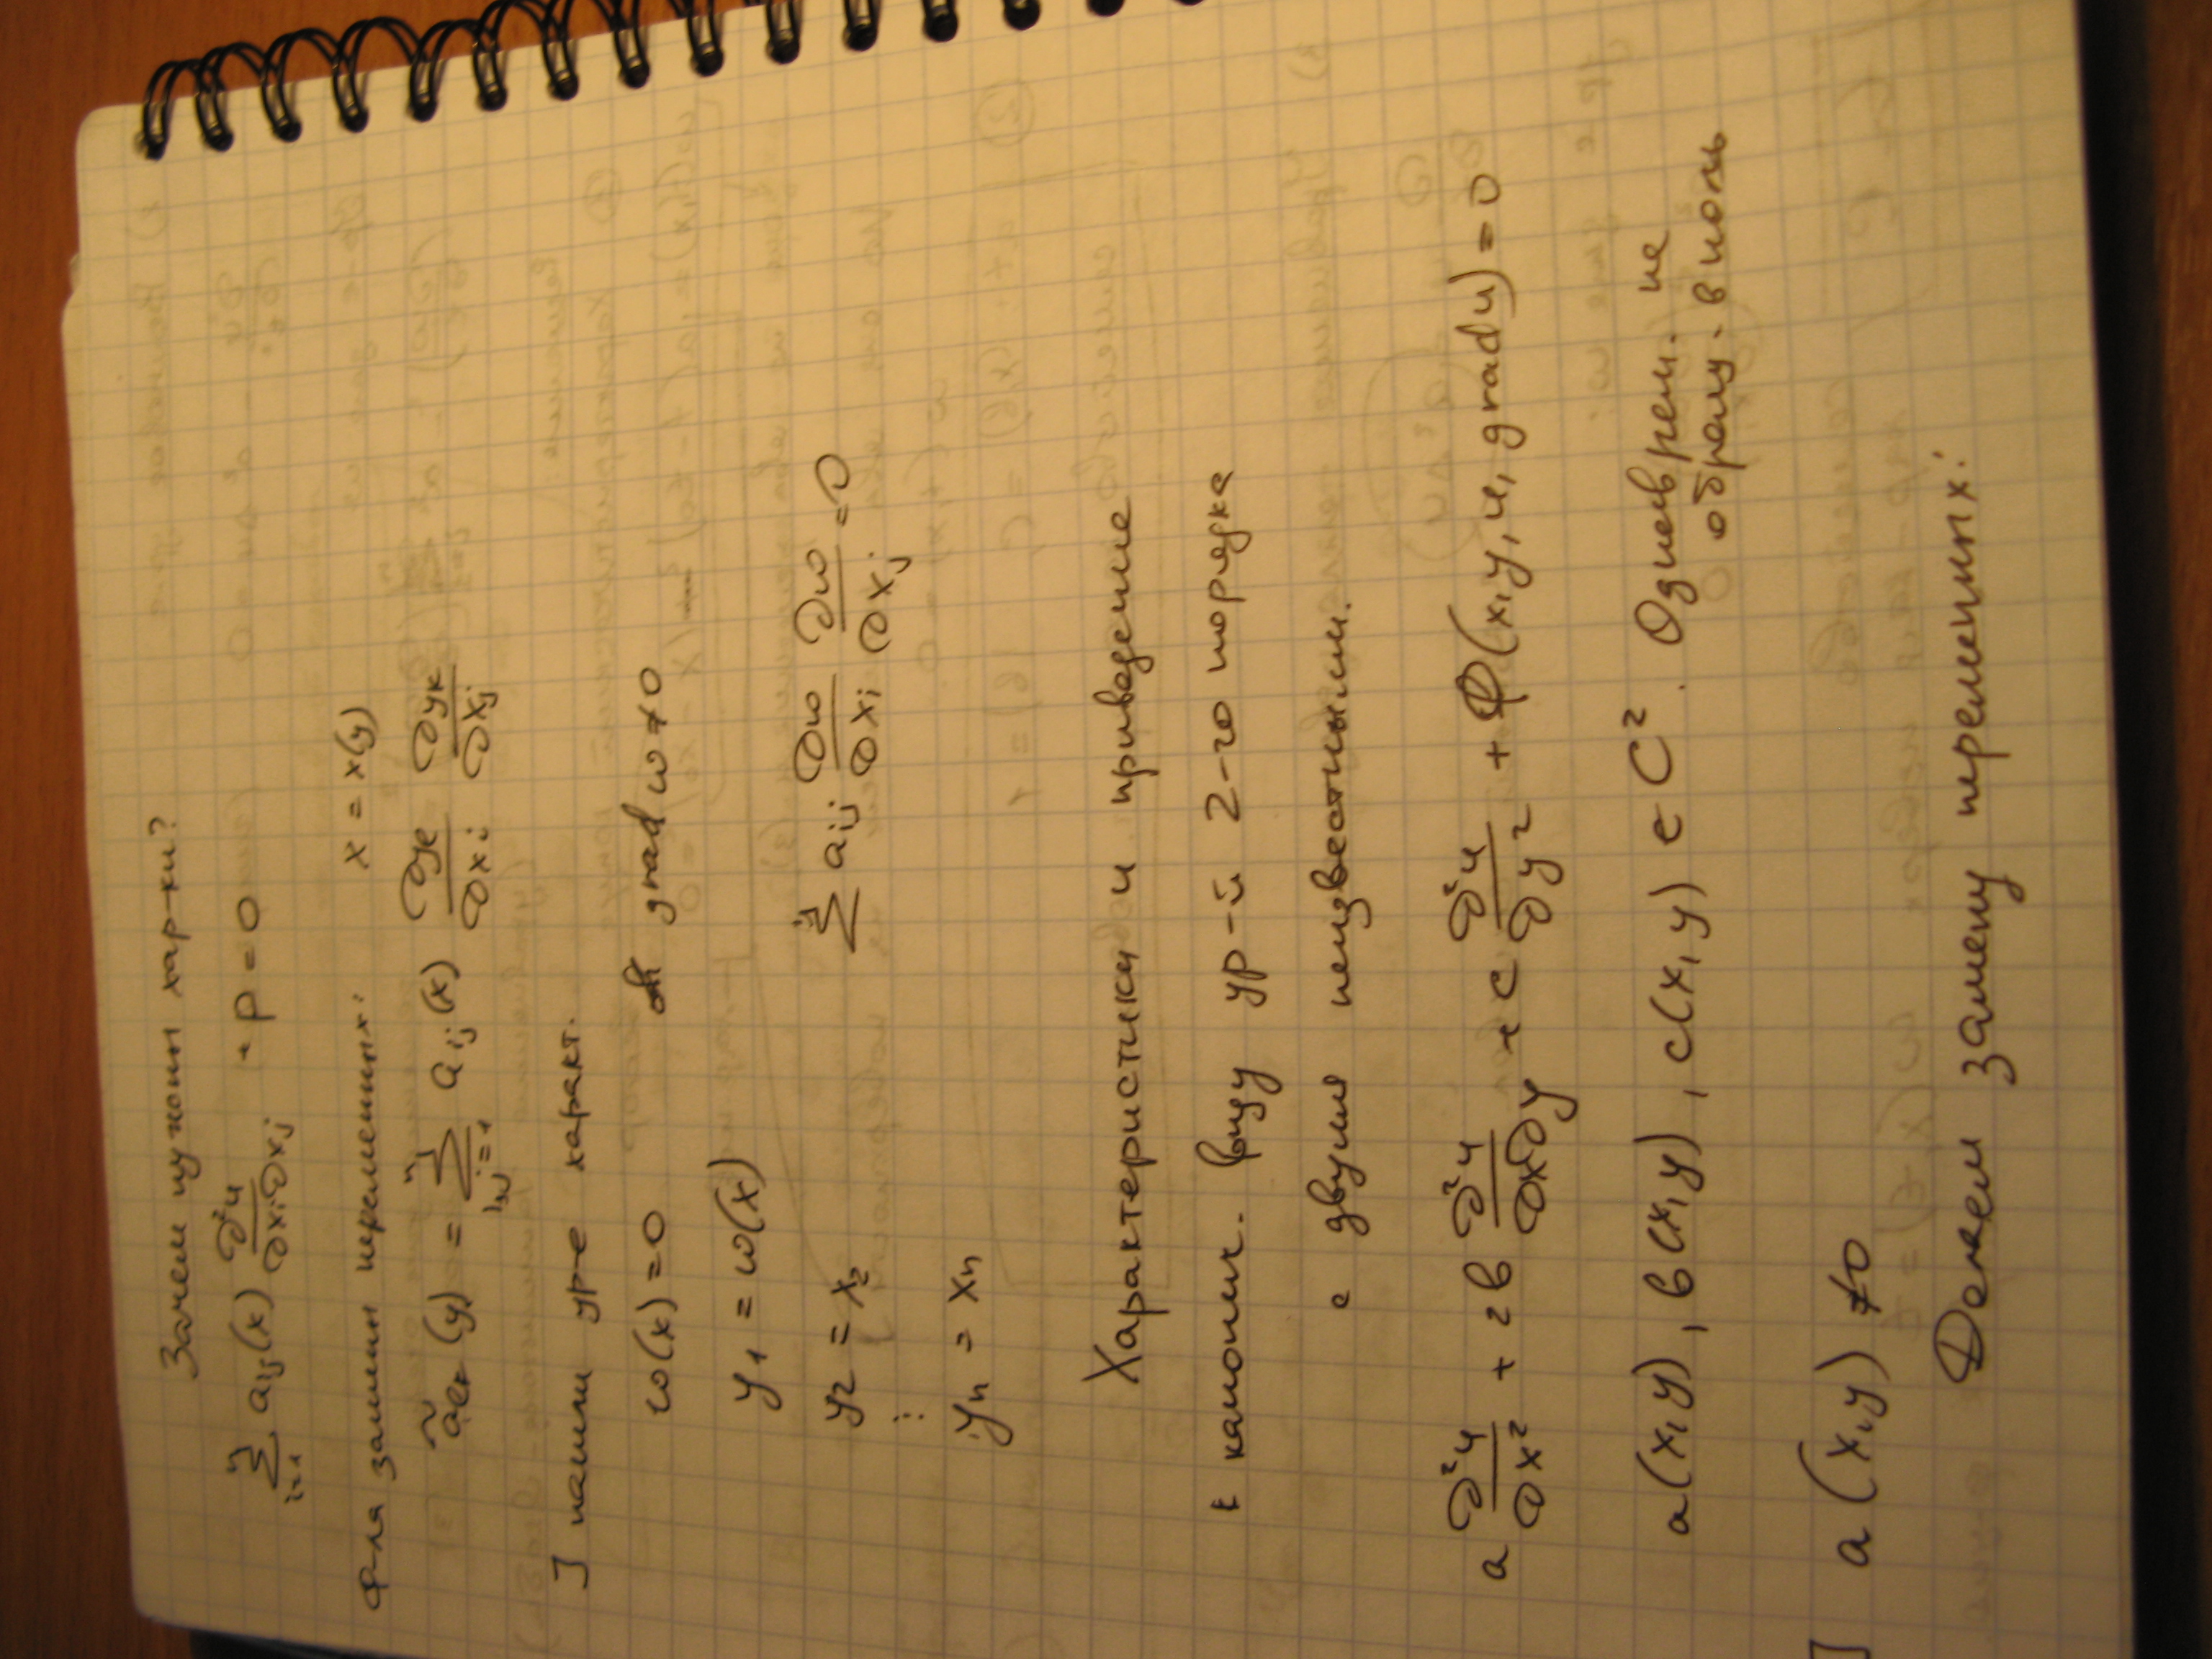 Зачем нужны хар-ки?
∑ⁿᵢ₌₁ aᵢⱼ(x) ∂²u/∂xᵢ∂xⱼ + P = 0
Ф-ла замены переменных: x = x(y)
ãₑₖ(y) = ∑ⁿᵢ,ⱼ₌₁ aᵢⱼ(x) ∂yₑ/∂xᵢ ∂yₖ/∂xⱼ
] нашли ур-е характ.
ω(x) = 0 grad ω ≠ 0
y₁ = ω(x)
y₂ = x₂ ∑ⁿ aᵢⱼ ∂ω/∂xᵢ ∂ω/∂xⱼ = 0
⋮
yₙ = xₙ
Характеристики и приведение
к канонич. виду ур-й 2-го порядка
с двумя неизвестными.
a ∂²u/∂x² + 2b ∂²u/∂x∂y + c ∂²u/∂y² + Φ(x, y, u, grad u) = 0
a(x, y), b(x, y), c(x, y) ∈ C². Одноврем. не
обращ. в ноль
] a(x, y) ≠ 0
Делаем замену переменных: